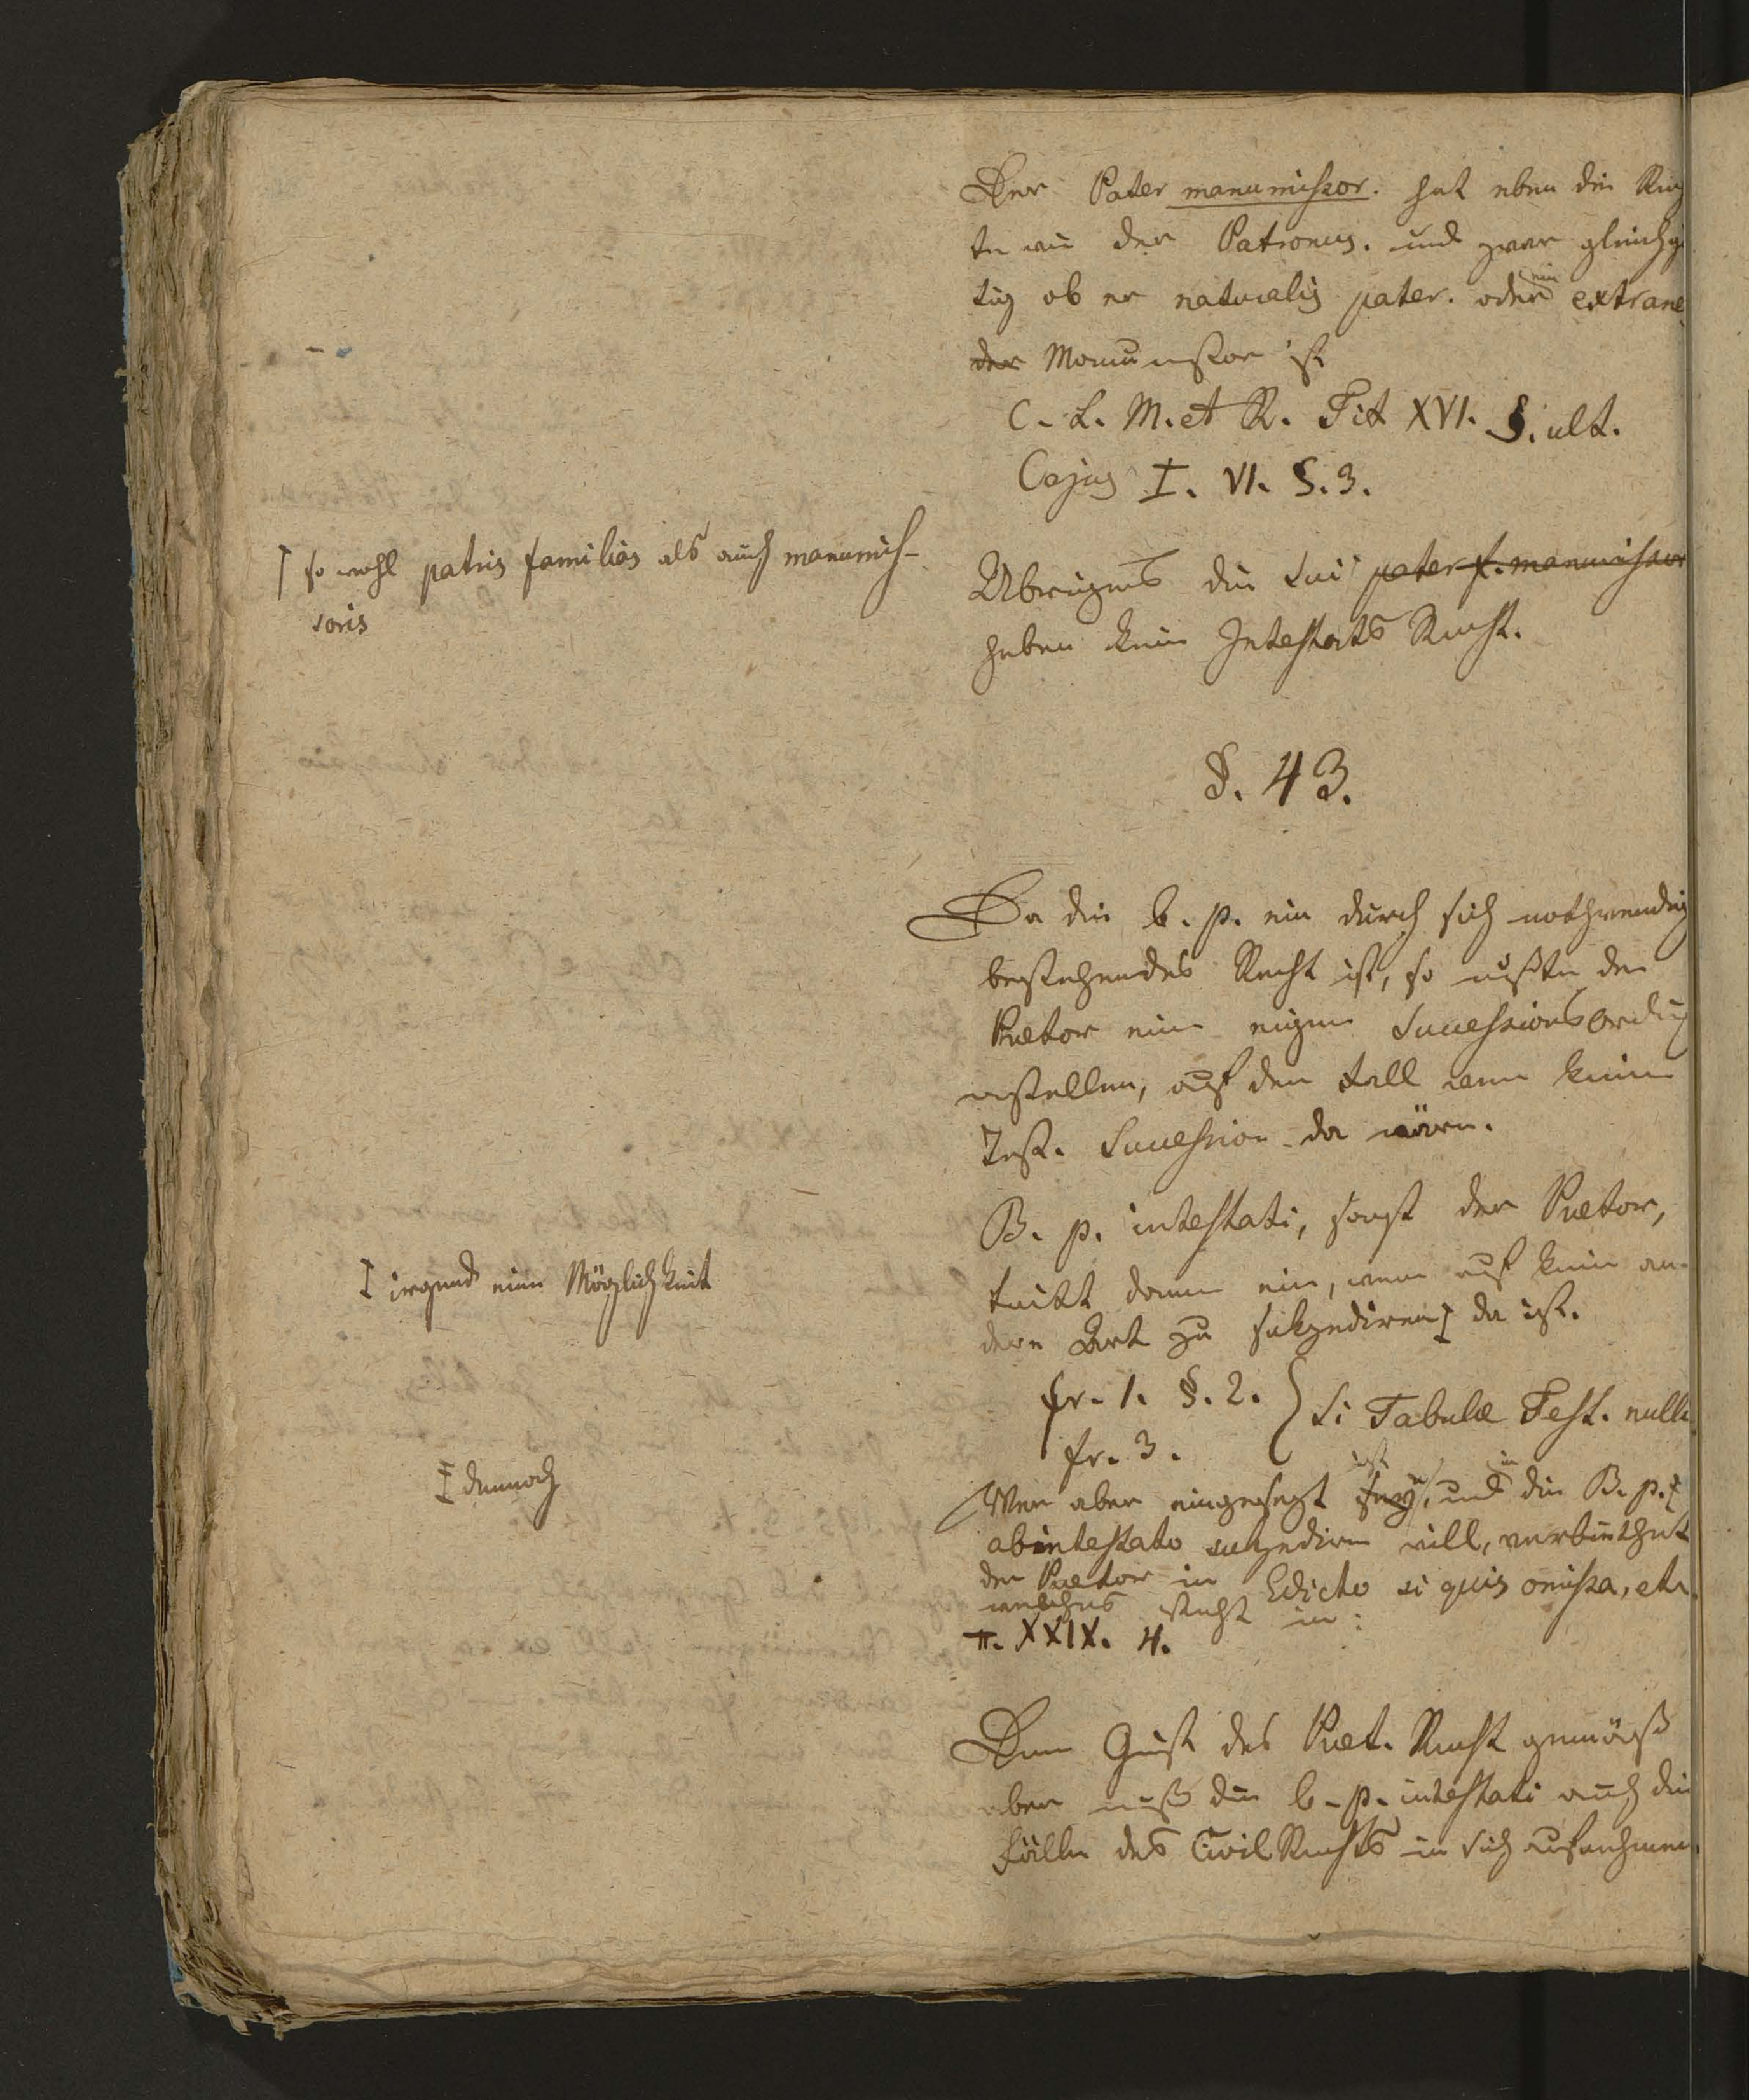 Der Pater manumissor. hat eben die Rech
te wie der Patronus. und zwar gleichgi
tig ob er naturalis pater. oder ein extrane
der Manumissor ist
C. L. M. et R. Tit XVI. §. ult.
Cajus I. VI. §. 3.
Übrigens die sui pater f. manumissor
haben kein Intestats Recht.
⌈ so wohl patris familias als auch manumis-
soris
§. 43.
Da die b. p. ein durch sich nothwendig
bestehendes Recht ist, so mußte der
Prætor eine eigene Successions Ordng
erstellen, auf den Fall wenn keine
Test. Succession da wäre.
B. p. intestati, sagt der Prætor,
tritt dann ein, wenn auf keine an-
dere Art zu sukzediren da ist.
irgend eine Möglichkeit
fr. 1. §. 2. } Si Tabulæ Test. nullæ
fr. 3.
Wer aber eingesezt ist, und in die B. p.
abintestato sukzediren will, verbiethet
der Prætor in Edicto si quis omissa, etc.
welches steht in:
π. XXIX. 4.
dennoch
Dem Geist des Præt. Recht gemäß
aber muß die b. p. intestati auch die
Fälle des Civil Rechts in sich aufnehmen